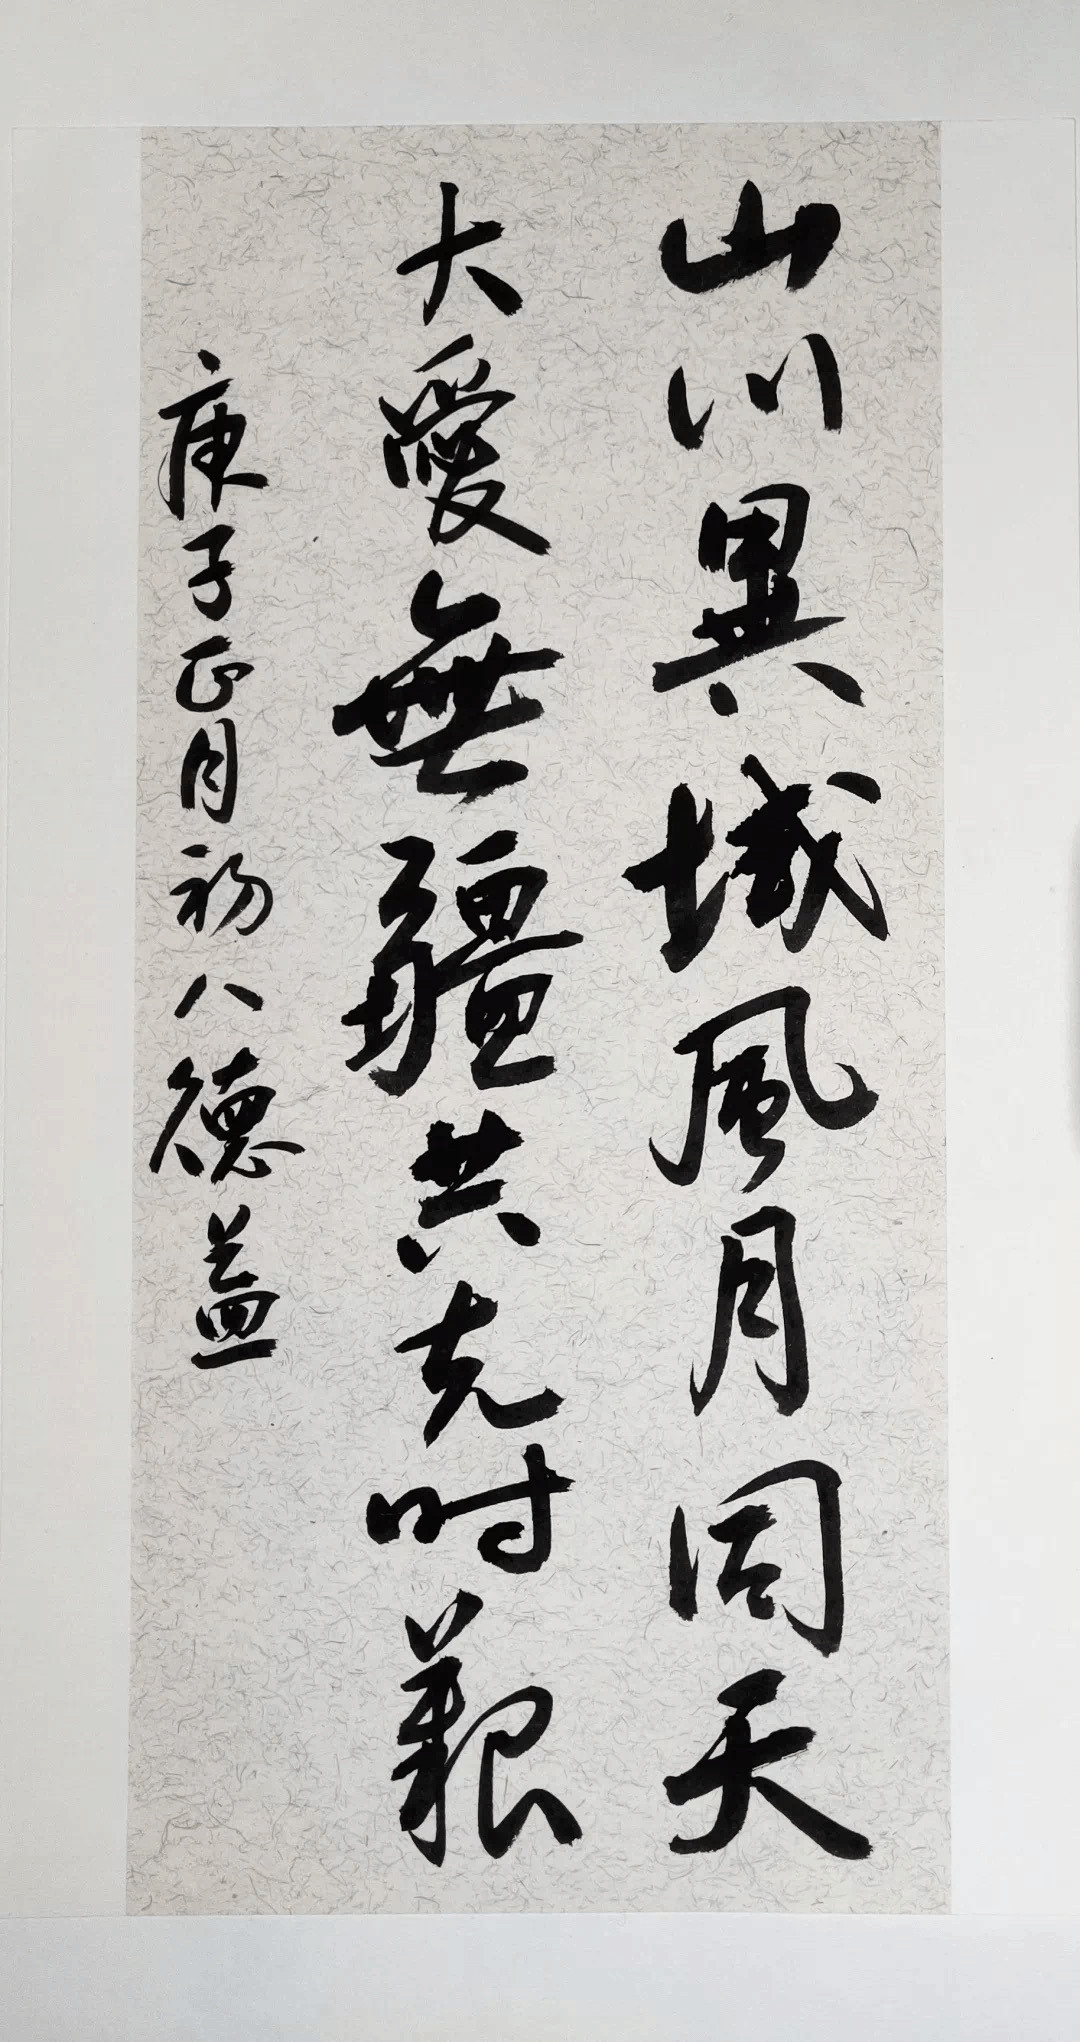 山川異域風月同天
大愛無疆共克时艱
庚子正月初八德益